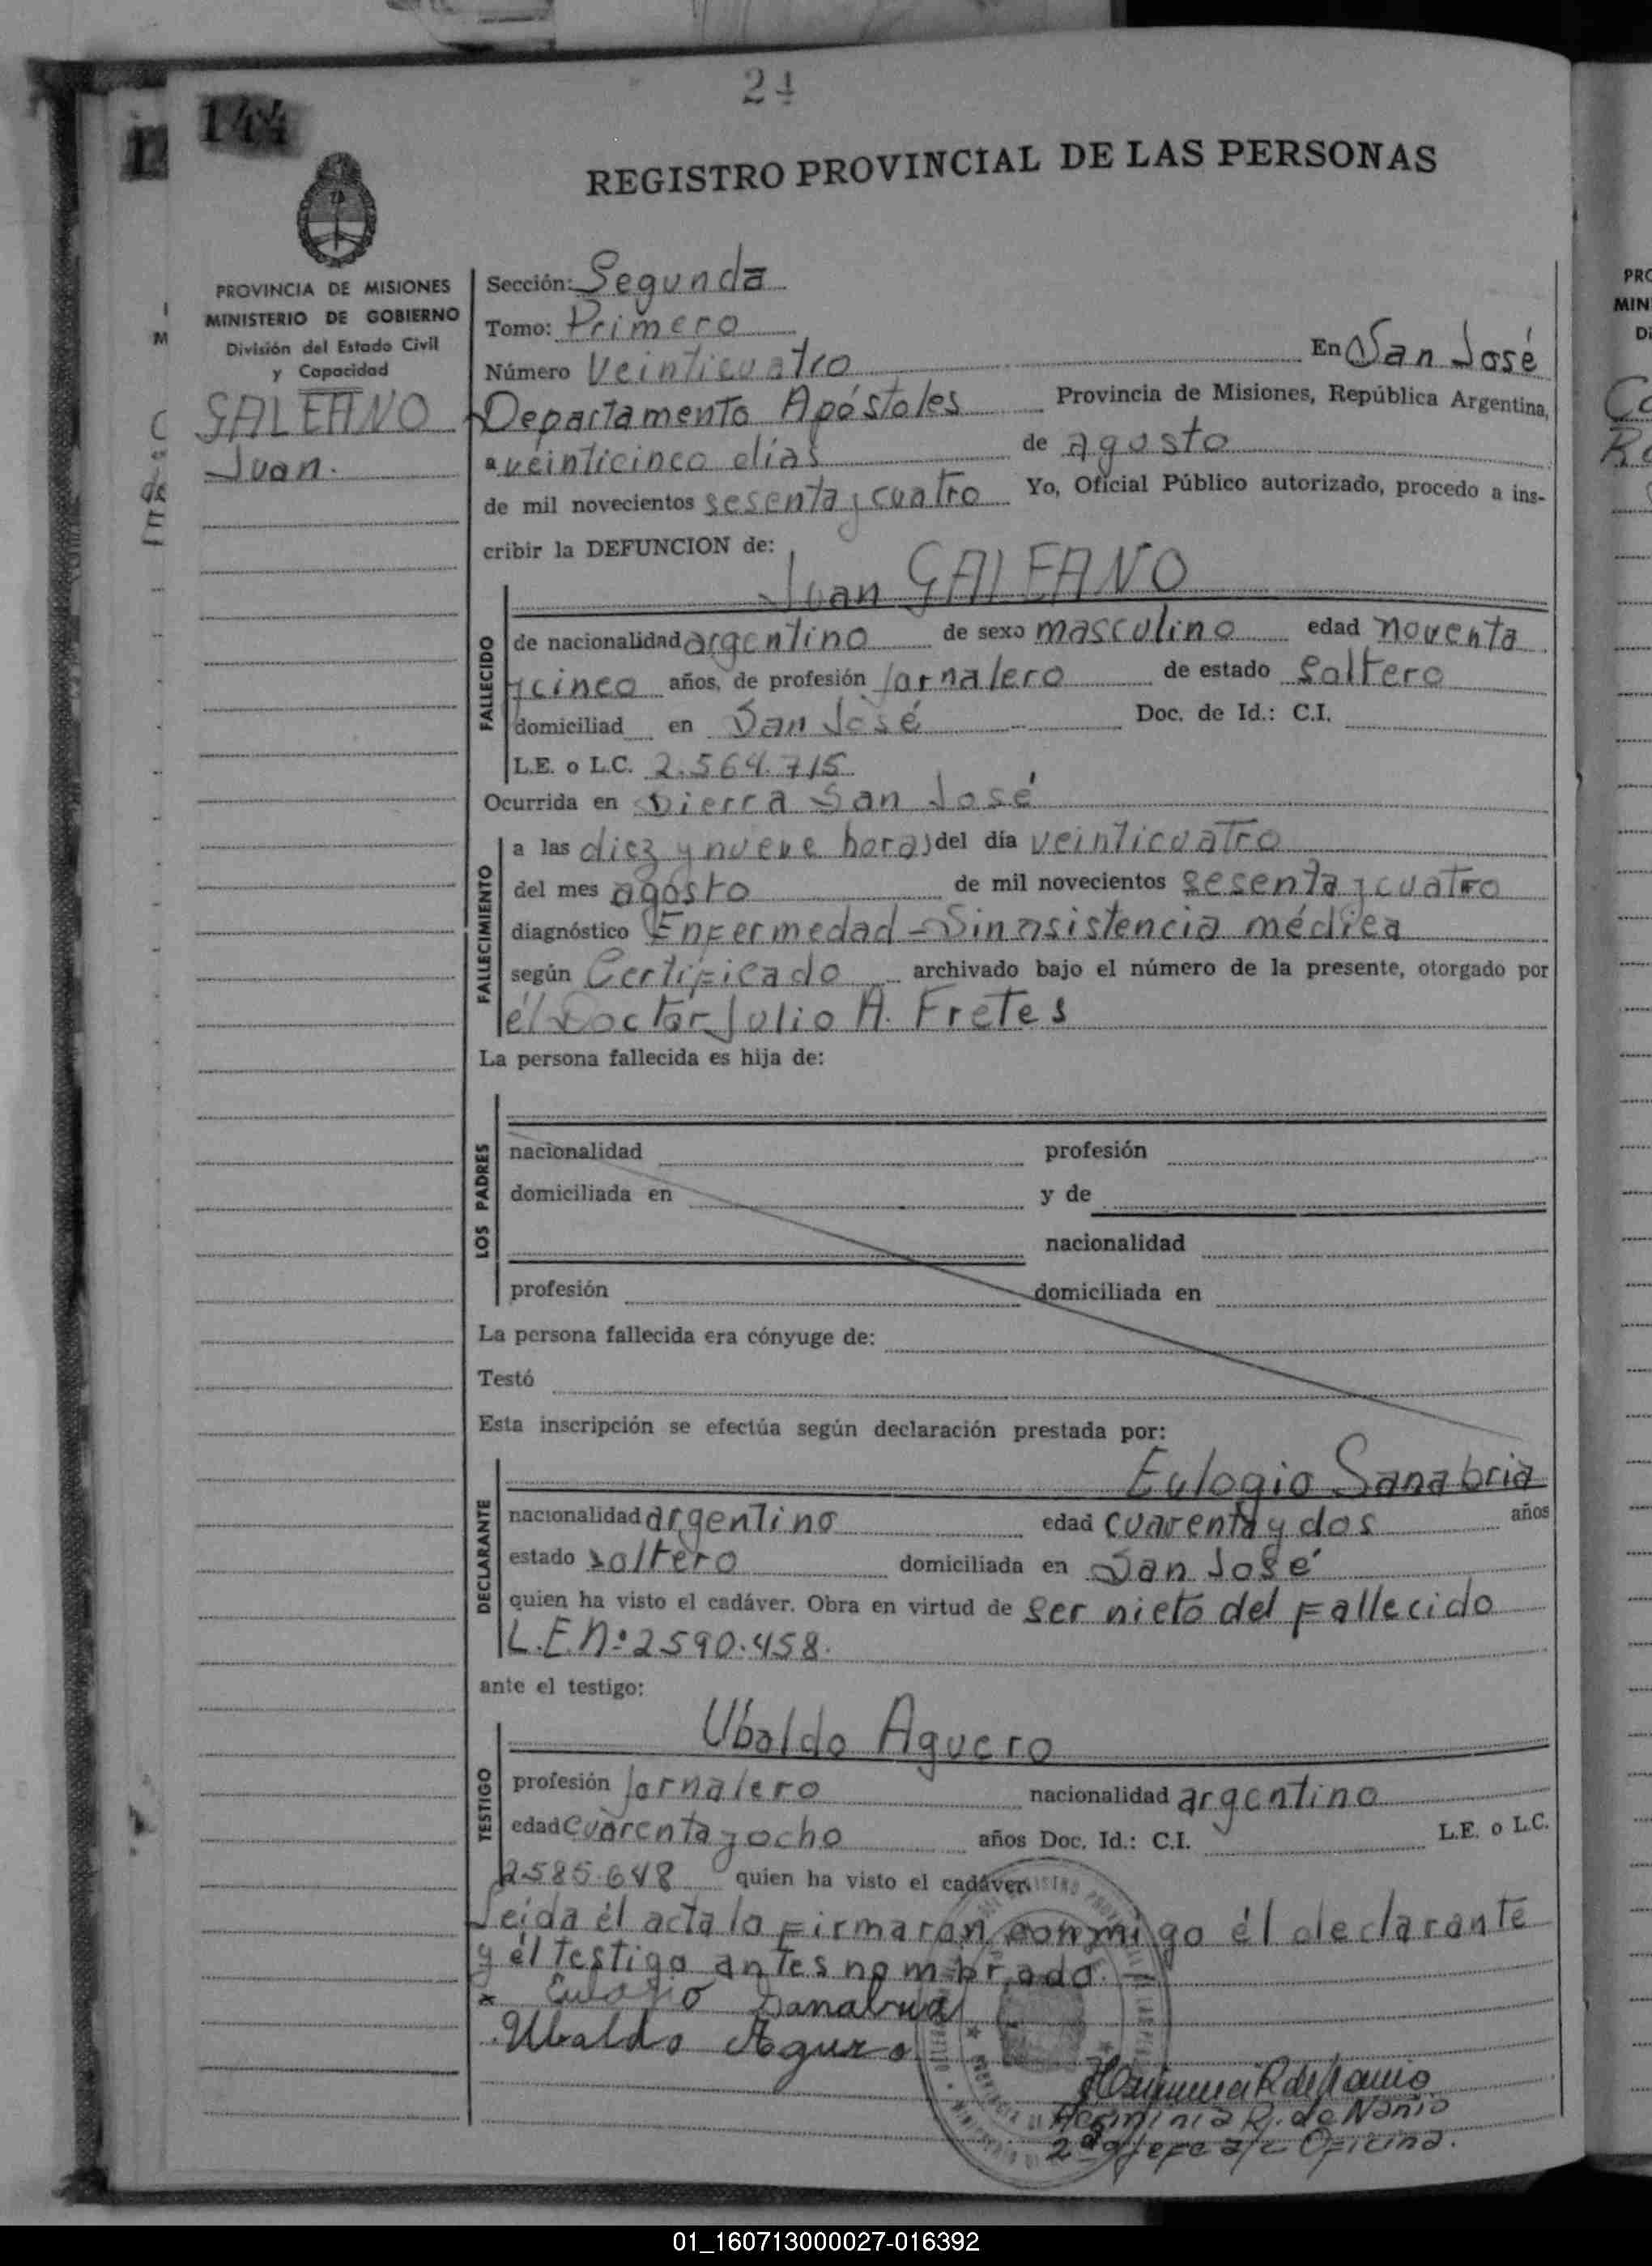 24
144
REGISTRO PROVINCIAL DE LAS PERSONAS
PROVINCIA DE MISIONES
MINISTERIO DE GOBIERNO
División del Estado Civil
y Capacidad
GALEANO
Juan.
Sección: Segunda
Tomo: Primero
Número Veinticuatro En San José
Departamento Apóstoles Provincia de Misiones, República Argentina,
a veinticinco días de agosto
de mil novecientos sesenta y cuatro Yo, Oficial Público autorizado, procedo a ins-
cribir la DEFUNCION de:
Juan GALEANO
FALLECIDO
de nacionalidad argentino de sexo masculino edad noventa
y cinco años, de profesión Jornalero de estado Soltero
domiciliad en San José Doc. de Id.: C.I.
L.E. o L.C. 2.564.715
Ocurrida en Sierra San José
FALLECIMIENTO
a las diez y nueve horas del día veinticuatro
del mes agosto de mil novecientos sesenta y cuatro
diagnóstico Enfermedad - Sin asistencia médica
según Certificado archivado bajo el número de la presente, otorgado por
él Doctor Julio A. Fretes
La persona fallecida es hija de:
LOS PADRES
nacionalidad profesión
domiciliada en y de
nacionalidad
profesión domiciliada en
La persona fallecida era cónyuge de:
Testó
Esta inscripción se efectúa según declaración prestada por:
Eulogio Sanabria
DECLARANTE
nacionalidad argentino edad cuarenta y dos años
estado soltero domiciliada en San José
quien ha visto el cadáver. Obra en virtud de ser nieto del fallecido
L.E. Nº 2590.458.
ante el testigo:
Ubaldo Aguero
TESTIGO
profesión Jornalero nacionalidad argentino
edad cuarenta y ocho años Doc. Id.: C.I. L.E. o L.C.
2585.648 quien ha visto el cadáver.
Leida él acta la firmaran conmigo él declarante
y él testigo antes nombrado. —
x Eulogio Sanabria
Ubaldo Aguero
Herminia R. de Nanio
2da Jefe a/c Oficina.
PRO
MIN
Di
01_160713000027-016392